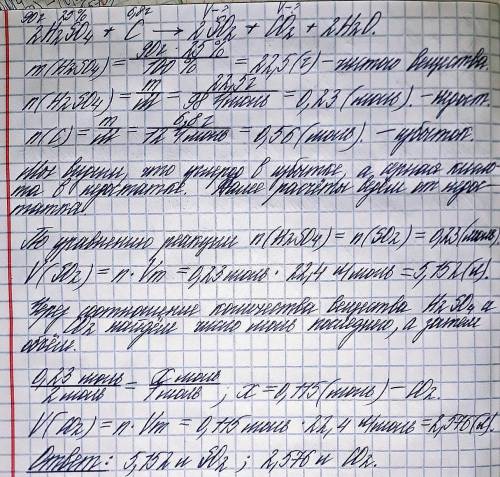 90г 25% 6,8г V-? V-?
2H2SO4 + C → 2SO2 + CO2 + 2H2O.
m(H2SO4) = 90г · 25% / 100% = 22,5(г) - чистого вещества.
n(H2SO4) = m/M = 22,5г / 98 г/моль = 0,23(моль). - недост.
n(C) = m/M = 6,8г / 12 г/моль = 0,56(моль). - избыток.
Мы видим, что углерод в избытке, а серная кисло-
та в недостатке. Далее расчёты ведём от недос-
татка.
По уравнению реакции n(H2SO4) = n(SO2) = 0,23(моль)
V(SO2) = n · Vm = 0,23 моль · 22,4 л/моль = 5,152(л).
Чрез соотношение количества вещества H2SO4 и
CO2 найдём число моль последнего, а затем
объём.
0,23 моль / 2 моль = x моль / 1 моль ; x = 0,115(моль) - CO2.
V(CO2) = n · Vm = 0,115 моль · 22,4 л/моль = 2,576(л).
Ответ: 5,152 л SO2 ; 2,576 л CO2.